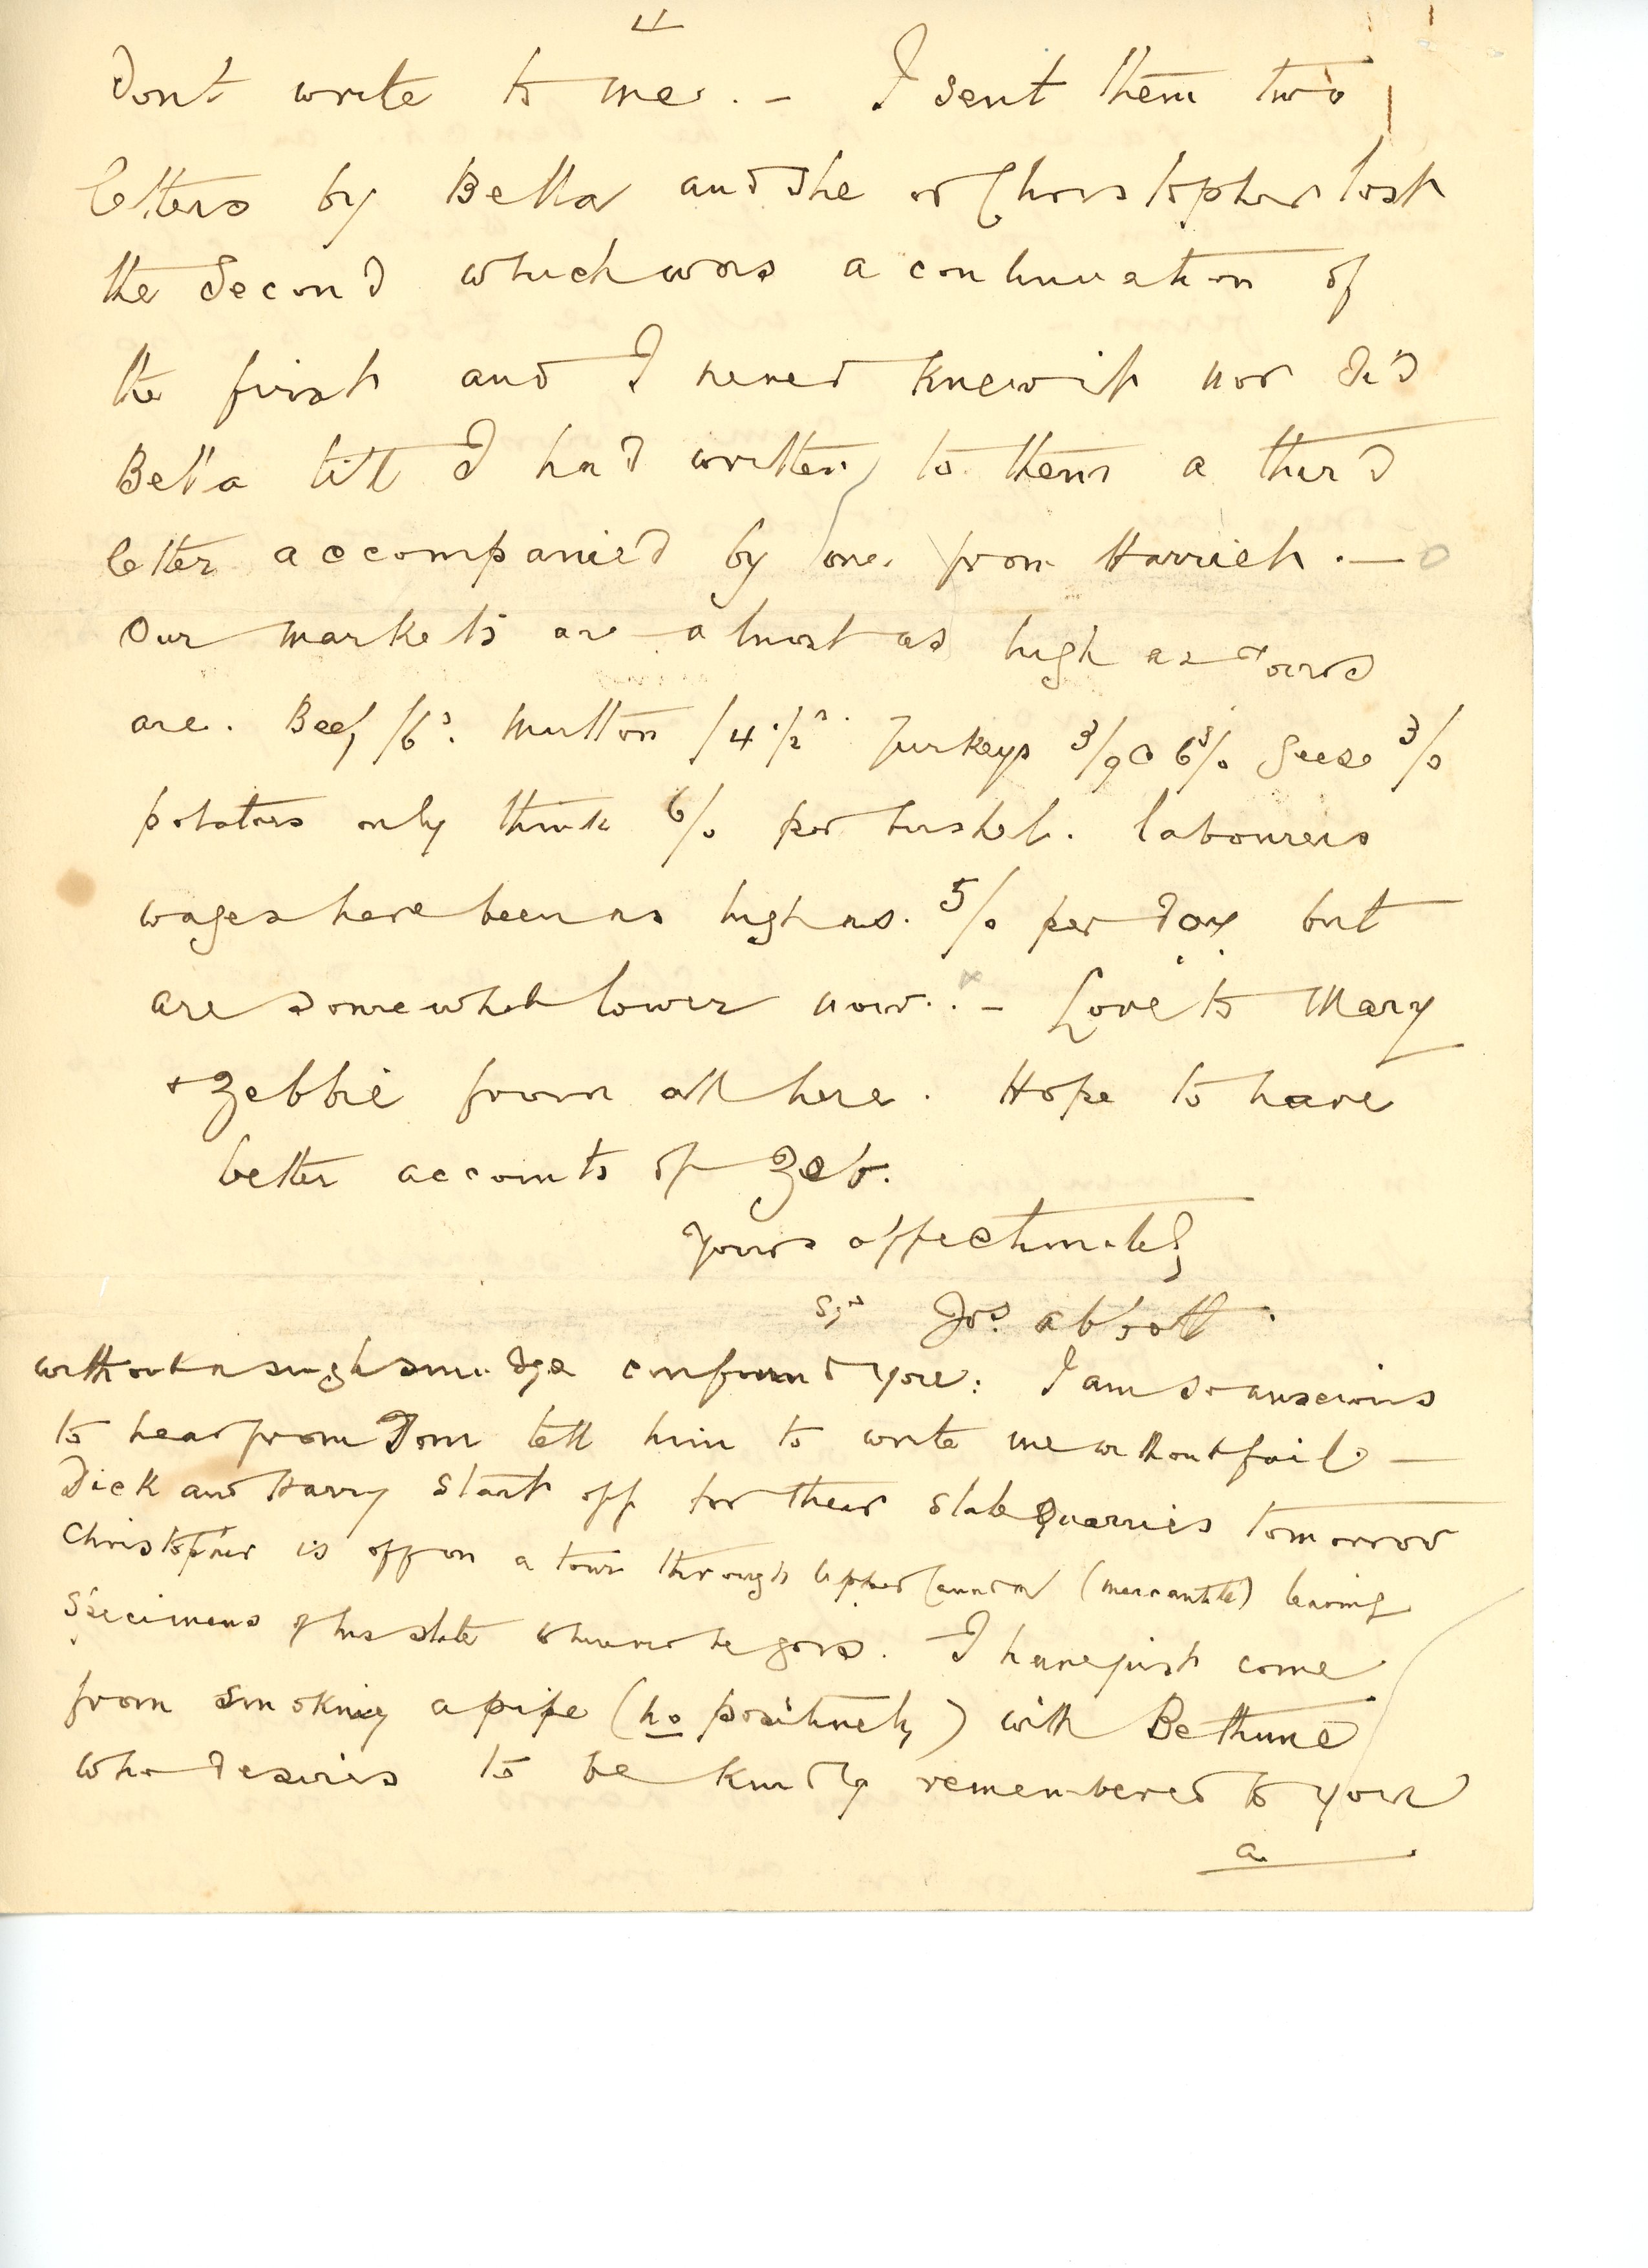 4
Dont write to me. — I sent them two
letters by Bella and she or Christopher lost
the Second which was a continuation of
the first and I never knew it nor did
Bella till I had written to them a third
letter accompanied by one from Harriet. —
Our markets are almost as high as yours
are. Beef /6d. Mutton /4 1/2d. Turkeys 3/9 6/0 Geese 3/0
potatoes only think 6/0 per bushel. labourers
wages have been as high as. 5/0 per day but
are somewhat lower now. — Love to Mary
+ Zebbie from all here. Hope to have
better accounts of Zeb.
Yours affectionately
Sgd Jos. abbott
without a single smudge confound you: I am so anxious
to hear from Tom tell him to write me without fail —
Dick and Harry start off for their slate Quarries tomorrow
Christopher is off on a tour through Upper Canada (mercantile) leaving
Specimens of his slate wherever he goes. I have just come
from smoking a pipe (no positively) with Bethune
who desires to be kindly remembered to you
a